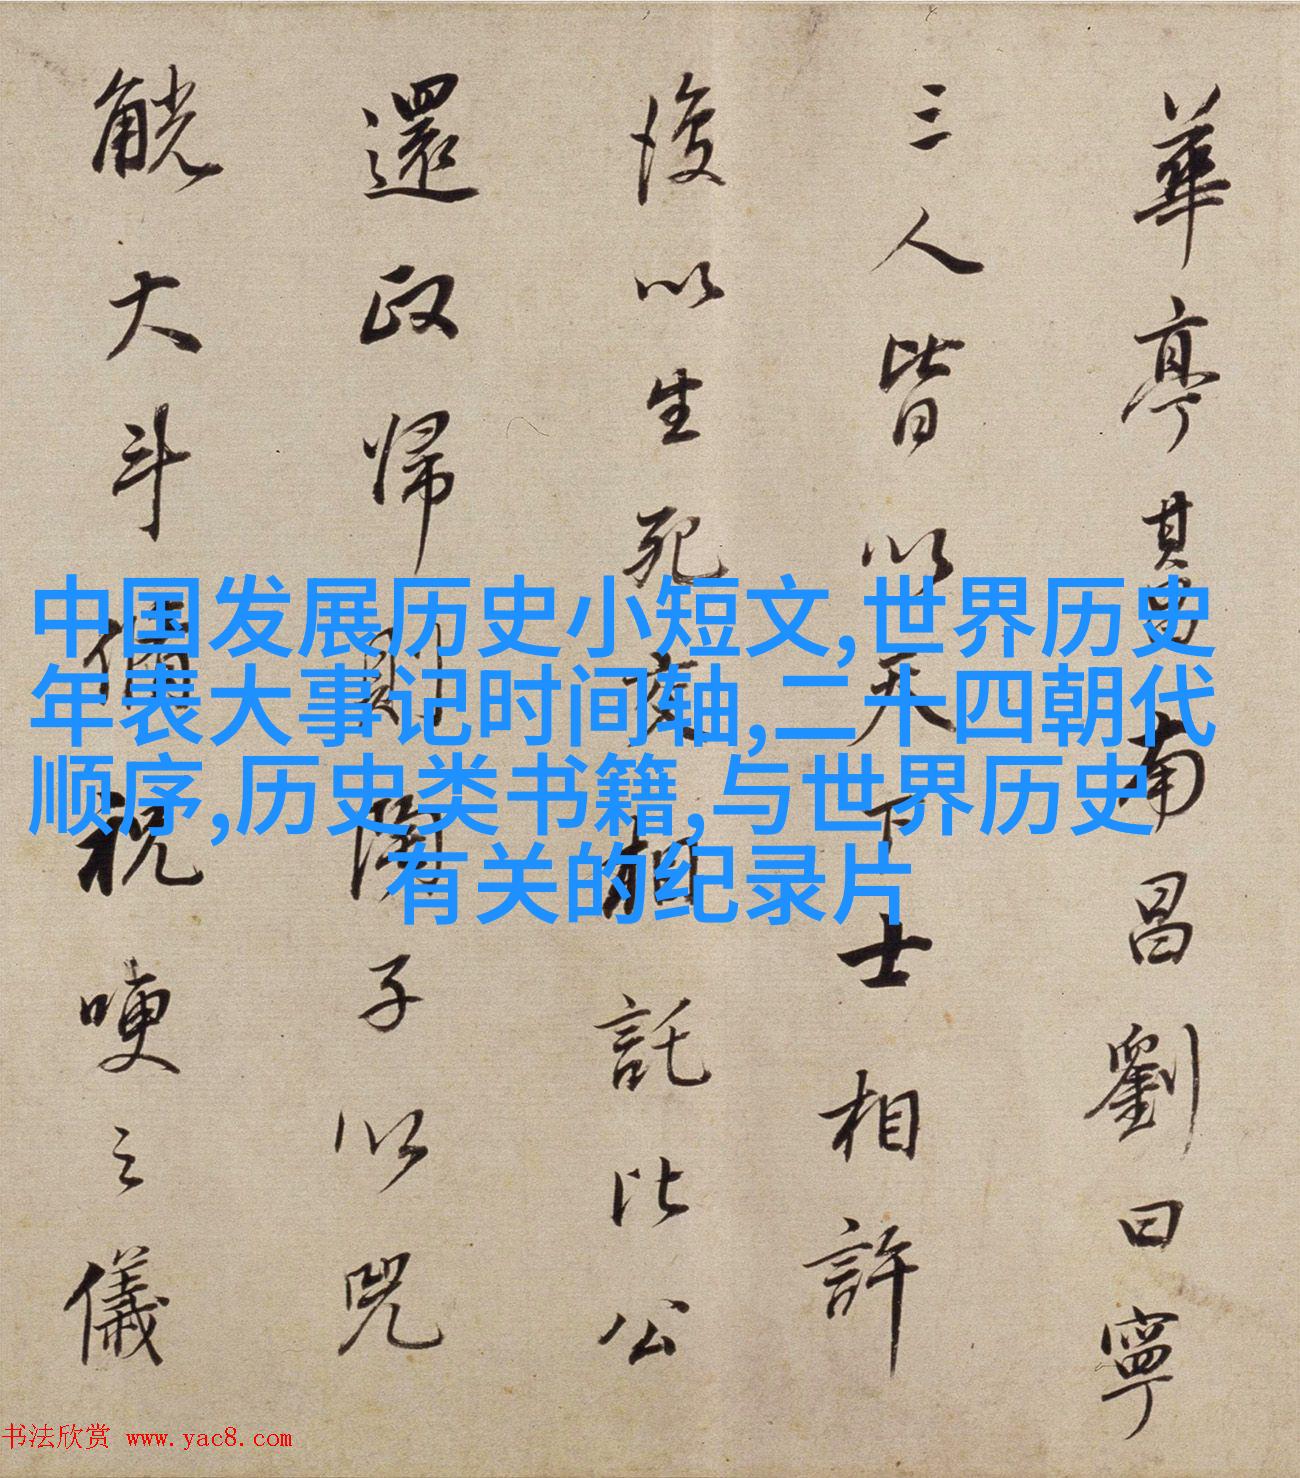 中国发展历史小短文,世界历史
年表大事记时间轴,二十四朝代
顺序,历史类书籍,与世界历史
有关的纪录片
華亭其南昌劉曰寧
三人皆以天下士相許
後以生死交相託比公
還政歸則子以兕
觥大斗備祝哽之儀
书法欣赏 www.yac8.com